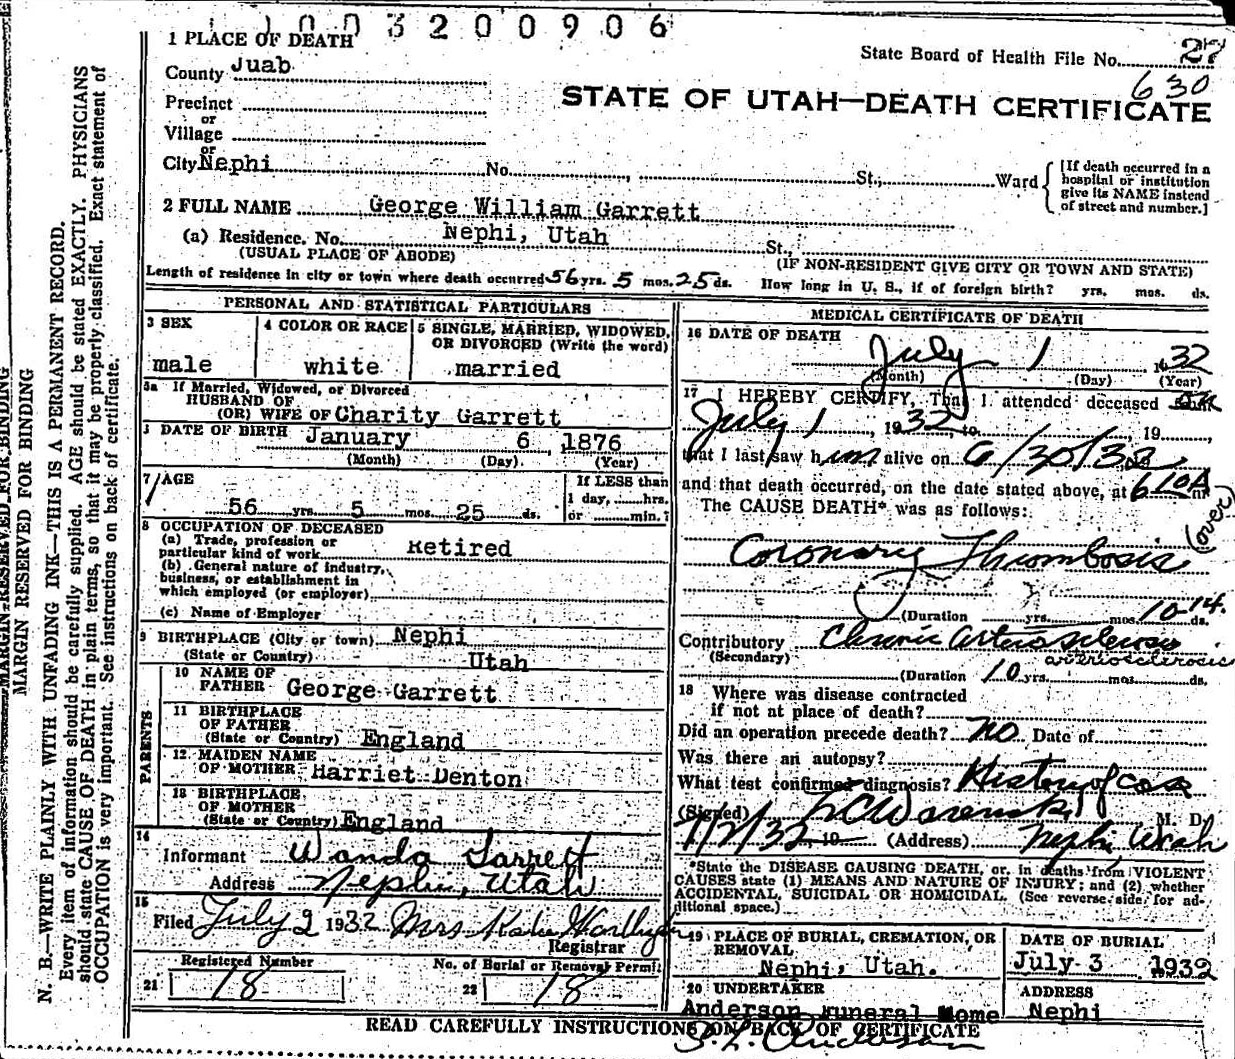 1003200906
1 PLACE OF DEATH
State Board of Health File No. 27
County Juab
630
STATE OF UTAH—DEATH CERTIFICATE
Precinct
or
Village
or
City Nephi No. , St., Ward
[If death occurred in a hospital or institution give its NAME instead of street and number.]
2 FULL NAME George William Garrett
(a) Residence. No. Nephi, Utah St.,
(USUAL PLACE OF ABODE) (IF NON-RESIDENT GIVE CITY OR TOWN AND STATE)
Length of residence in city or town where death occurred 56 yrs. 5 mos. 25 ds. How long in U. S., if of foreign birth? yrs. mos. ds.
PERSONAL AND STATISTICAL PARTICULARS
3 SEX
male
4 COLOR OR RACE
white
5 SINGLE, MARRIED, WIDOWED, OR DIVORCED (Write the word)
married
5a If Married, Widowed, or Divorced
HUSBAND OF
(OR) WIFE OF Charity Garrett
DATE OF BIRTH January 6 1876
(Month) (Day) (Year)
7 AGE
56 yrs. 5 mos. 25 ds.
If LESS than
1 day, hrs.
or min.?
8 OCCUPATION OF DECEASED
(a) Trade, profession or
particular kind of work Retired
(b) General nature of industry,
business, or establishment in
which employed (or employer)
(c) Name of Employer
9 BIRTHPLACE (City or town) Nephi
(State or Country) Utah
PARENTS
10 NAME OF
FATHER George Garrett
11 BIRTHPLACE
OF FATHER
(State or Country) England
12 MAIDEN NAME
OF MOTHER Harriet Denton
13 BIRTHPLACE
OF MOTHER
(State or Country) England
14
Informant Wanda Garrett
Address Nephi, Utah
15
Filed July 2 1932 Mrs. Kate
Registrar
Registered Number
21 18
No. of Burial or Removal Permit
22 18
MEDICAL CERTIFICATE OF DEATH
16 DATE OF DEATH
July 1 1932
(Month) (Day) (Year)
17 I HEREBY CERTIFY, That I attended deceased on
July 1, 1932, to , 19 ,
that I last saw him alive on 6/30/32
and that death occurred, on the date stated above, at 6 10A m
The CAUSE DEATH* was as follows:
(over)
Coronary Thrombosis
(Duration yrs. mos. 10-14 ds.
Contributory Chronic Arterio sclerosis
(Secondary) arteriosclerosis
(Duration 10 yrs. mos. ds.
18 Where was disease contracted
if not at place of death?
Did an operation precede death? No Date of
Was there an autopsy?
What test confirmed diagnosis? History of case
(Signed) M. D.
7/2/32 19 (Address) Nephi, Utah
*State the DISEASE CAUSING DEATH, or, in deaths from VIOLENT
CAUSES state (1) MEANS AND NATURE OF INJURY; and (2) whether
ACCIDENTAL, SUICIDAL OR HOMICIDAL. (See reverse side for ad-
ditional space.)
19 PLACE OF BURIAL, CREMATION, OR REMOVAL
Nephi, Utah.
DATE OF BURIAL
July 3 1932
20 UNDERTAKER
Anderson Funeral Home
ADDRESS
Nephi
READ CAREFULLY INSTRUCTIONS ON BACK OF CERTIFICATE
MARGIN RESERVED FOR BINDING
MARGIN RESERVED FOR BINDING
N. B.—WRITE PLAINLY WITH UNFADING INK—THIS IS A PERMANENT RECORD.
Every item of information should be carefully supplied. AGE should be stated EXACTLY. PHYSICIANS
should state CAUSE OF DEATH in plain terms, so that it may be properly classified. Exact statement of
OCCUPATION is very important. See instructions on back of certificate.